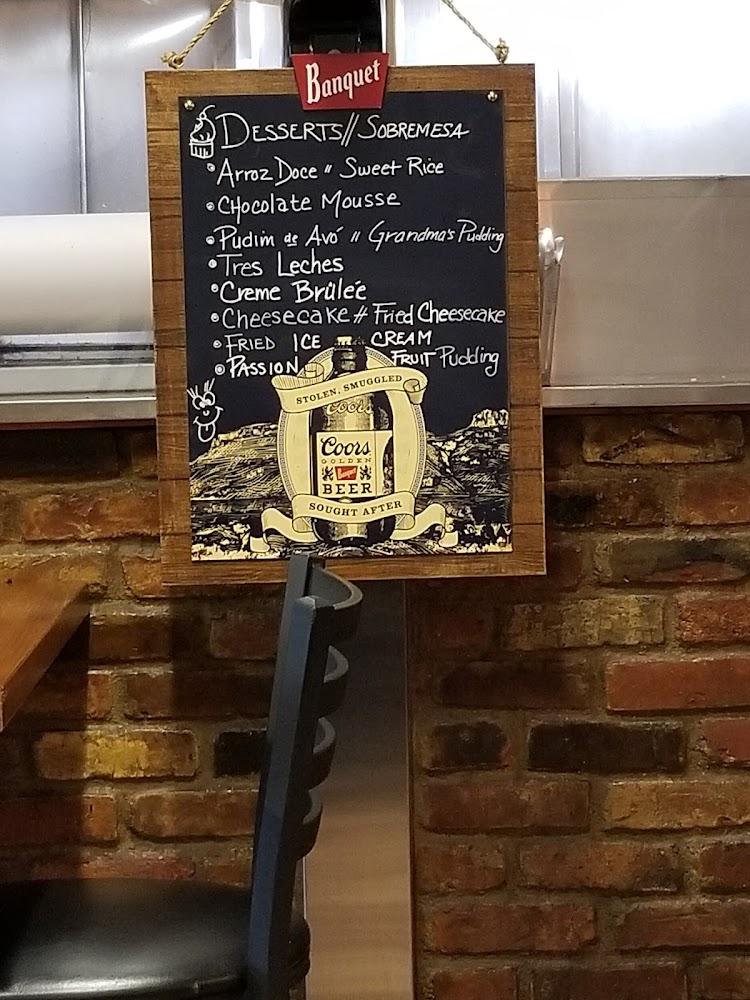 Banquet
DESSERTS // SOBREMESA
• Arroz Doce " Sweet Rice
• CHocolate Mousse
• Pudim de Avó " Grandma's Pudding
• Tres Leches
• Creme Brûleé
• Cheesecake // Fried Cheesecake
• FRIED ICE CREAM
• PASSION FRUIT Pudding
STOLEN, SMUGGLED
Coors
Coors
GOLDEN
Banquet
BEER
SOUGHT AFTER